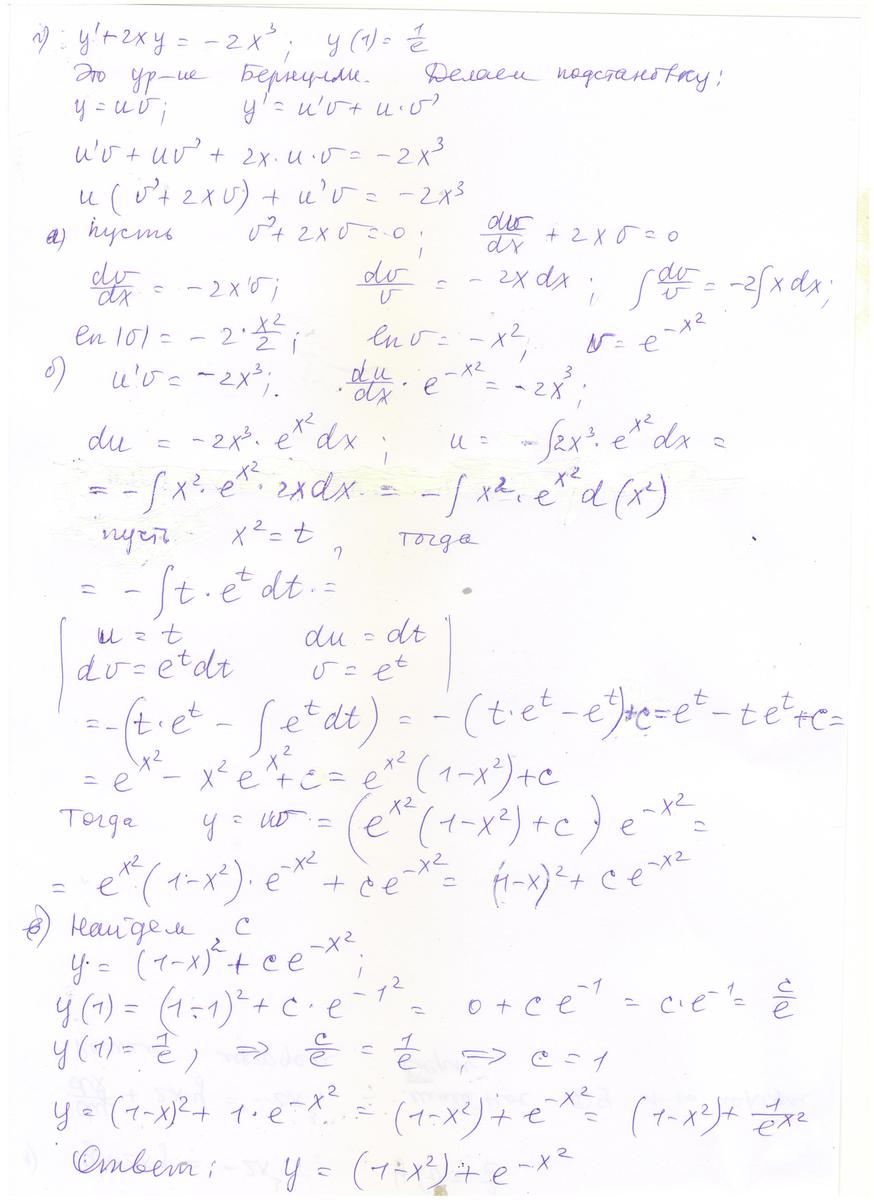 г) y'+2xy = -2x³; y(1) = 1/e
Это ур-ие Бернулли. Делаем подстановку:
y = uv; y' = u'v + u·v'
u'v + uv' + 2x·u·v = -2x³
u(v' + 2xv) + u'v = -2x³
а) пусть v' + 2xv = 0; dv/dx + 2xv = 0
dv/dx = -2xv; dv/v = -2xdx; ∫dv/v = -2∫xdx;
ln|v| = -2·x²/2; ln v = -x²; v = e^(-x²)
б) u'v = -2x³; du/dx · e^(-x²) = -2x³;
du = -2x³·e^(x²)dx; u = -∫2x³·e^(x²)dx =
= -∫x²·e^(x²)·2xdx = -∫x²·e^(x²)d(x²)
пусть x² = t, тогда
= -∫t·e^t dt =
| u = t du = dt |
| dv = e^t dt v = e^t |
= -(t·e^t - ∫e^t dt) = -(t·e^t - e^t)+c = e^t - te^t + c =
= e^(x²) - x²e^(x²) + c = e^(x²)(1-x²)+c
Тогда y = uv = (e^(x²)(1-x²)+c) e^(-x²) =
= e^(x²)(1-x²)·e^(-x²) + ce^(-x²) = (1-x)² + ce^(-x²)
в) Найдем c
y = (1-x)² + ce^(-x²);
y(1) = (1-1)² + c·e^(-1²) = 0 + ce^(-1) = c·e^(-1) = c/e
y(1) = 1/e, ⇒ c/e = 1/e, ⇒ c = 1
y = (1-x)² + 1·e^(-x²) = (1-x²) + e^(-x²) = (1-x²) + 1/e^(x²)
Ответ: y = (1-x²) + e^(-x²)